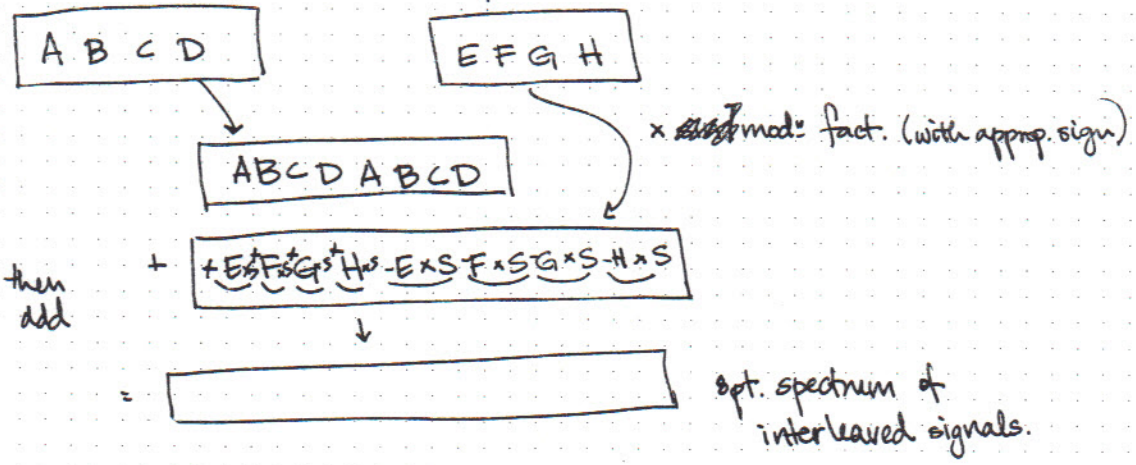 A B C D
E F G H
x mod: fact. (with approp. sign)
ABCD ABCD
then add
+ +ExS +FxS +GxS +HxS -ExS -FxS -GxS -HxS
=
8pt. spectrum of
interleaved signals.